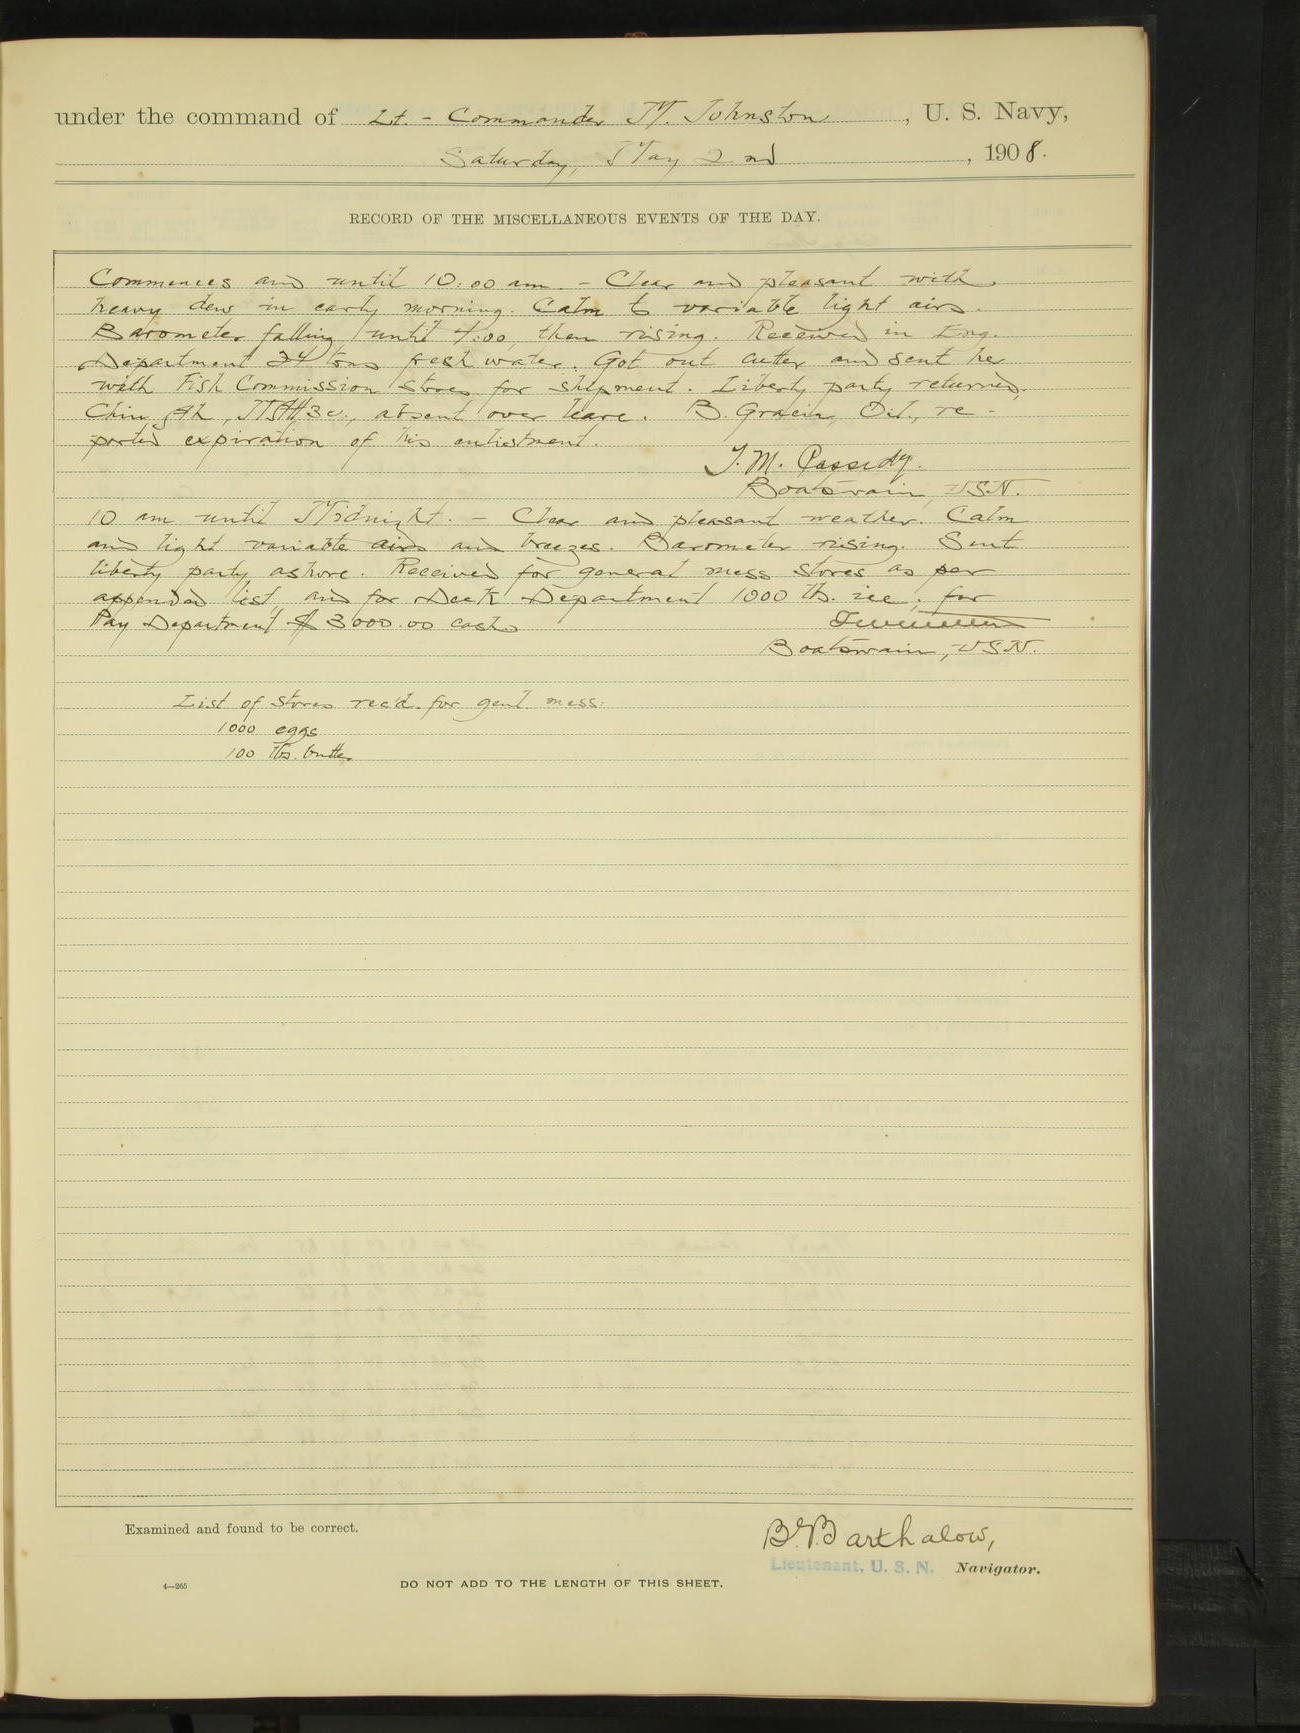 under the command of Lt. - Commander M. Johnston, U. S. Navy,
Saturday, May 2nd, 1908.
RECORD OF THE MISCELLANEOUS EVENTS OF THE DAY.
Commences and until 10:00 am. - Clear and pleasant with
heavy dew in early morning. Calm to variable light airs.
Barometer falling until 4:00, then rising. Received in Eng.
Department 24 tons fresh water. Got out cutter and sent her
with Fish Commission stores for shipment. Liberty party returned.
Chin Ah, MAtt3c., absent over leave. B. Gracin, Oil., re-
ported expiration of his enlistment.
T. M. Cassidy.
Boatswain, USN.
10 am until Midnight. - Clear and pleasant weather. Calm
and light variable airs and breezes. Barometer rising. Sent
liberty party ashore. Received for general mess stores as per
appended list, and for Deck Department 1000 lb. ice, for
Pay Department $3000.00 cash
Boatswain, USN.
List of stores rec'd. for genl. mess:
1000 eggs
100 lbs. butter
Examined and found to be correct.
B. B. Barthalow,
Lieutenant, U. S. N. Navigator.
4—265
DO NOT ADD TO THE LENGTH OF THIS SHEET.